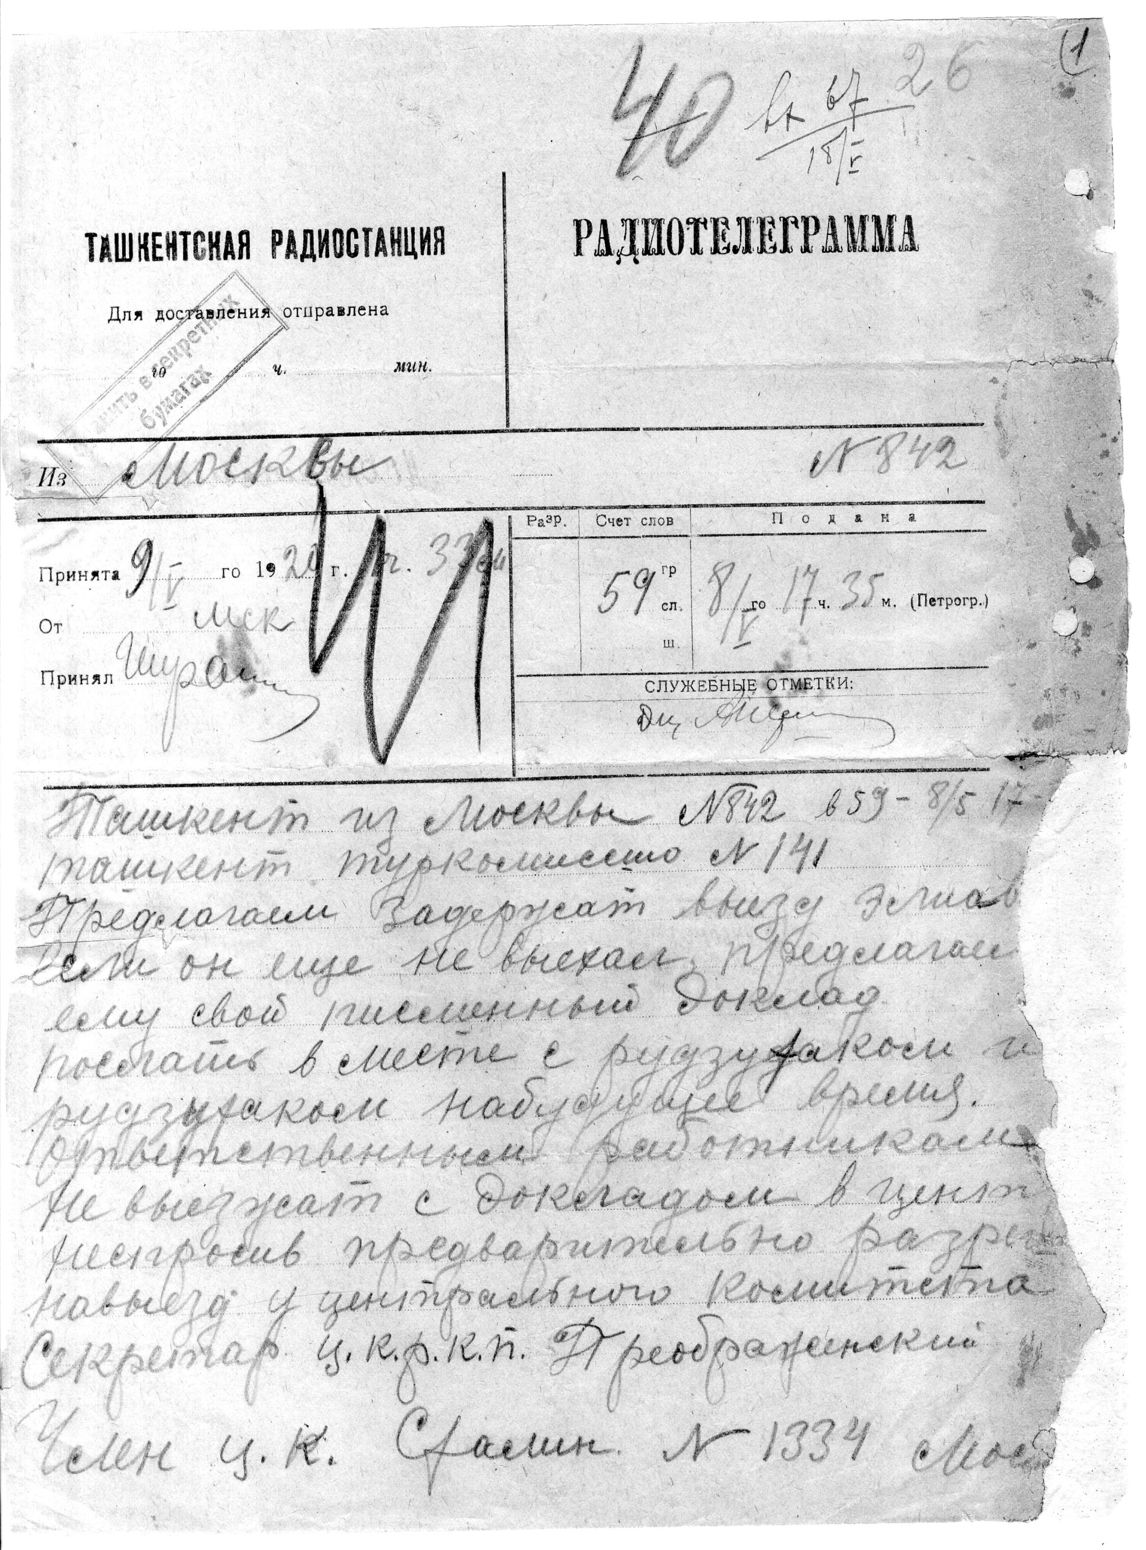 1
40 вх 67 26
18/V
ТАШКЕНТСКАЯ РАДИОСТАНЦИЯ
РАДИОТЕЛЕГРАММА
Для доставления отправлена
го ч. мин.
нить в секретных
бумагах
Из Москвы N 842
Разр. Счет слов Подана
Принята 9/V го 1920 г. ч. 33 м
59 гр сл. ш. 8/V го 17 ч. 35 м. (Петрогр.)
От мск
Принял
СЛУЖЕБНЫЕ ОТМЕТКИ:
Ташкент из Москвы N842 в 59 - 8/5 17-
ташкент туркомиссию N 141
Предлагаем задержат выезд элиав
если он еще не выехал, предлагаем
ему свой писменный доклад
послать в месте с рудзутаком и
рудзутаком набудущее время.
ответственным работникам
не выезжат с докладом в цент
неспросив предварительно разре
навыезд у центрального комитета
Секретар ц.к.р.к.п. Преображенский
Член ц.к. Сталин N 1334 Мос